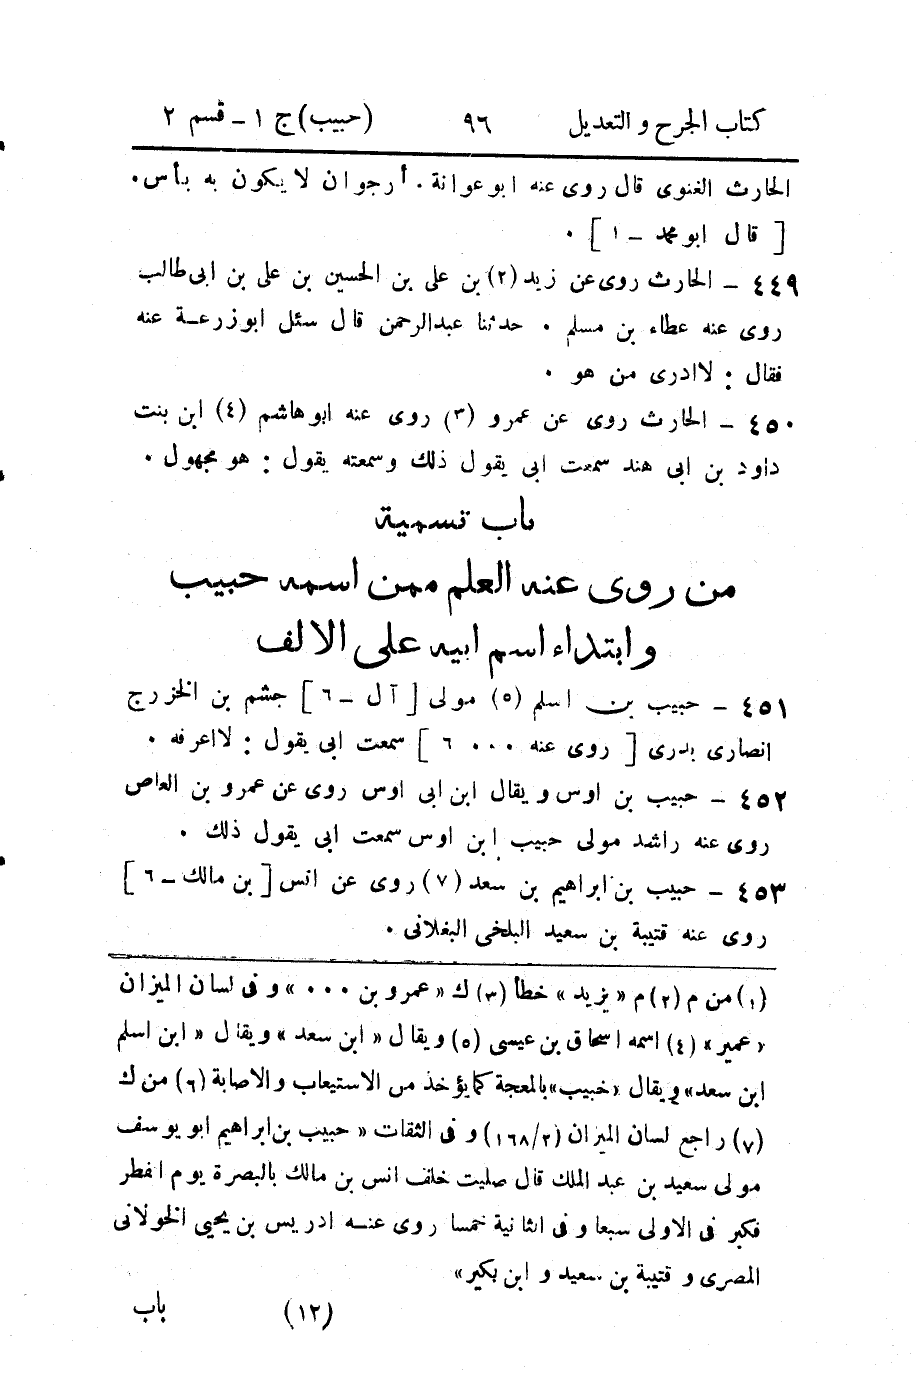 كتاب الجرح و التعديل ٩٦ (حبيب) ج ١ ـ قسم ٢
الحارث الغنوى قال روى عنه ابو عوانة . أرجو ان لا يكون به بأس.
[ قال ابو محمد ـ ١ ] .
٤٤٩ ـ الحارث روى عن زيد (٢) بن على بن الحسين بن على بن ابى طالب
روى عنه عطاء بن مسلم . حدثنا عبد الرحمن قال سئل ابو زرعة عنه
فقال : لا ادرى من هو .
٤٥٠ ـ الحارث روى عن عمرو (٣) روى عنه ابو هاشم (٤) ابن بنت
داود بن ابى هند سمعت ابى يقول ذلك وسمعته يقول : هو مجهول .
باب تسمية
من روى عنه العلم ممن اسمه حبيب
وابتداء اسم ابيه على الالف
٤٥١ ـ حبيب بن اسلم (٥) مولى [ آل ـ ٦ ] جشم بن الخزرج
انصارى بدرى [ روى عنه ... ٦ ] سمعت ابى يقول : لا اعرفه .
٤٥٢ ـ حبيب بن اوس ويقال ابن ابى اوس روى عن عمرو بن العاص
روى عنه راشد مولى حبيب ابن اوس سمعت ابى يقول ذلك .
٤٥٣ ـ حبيب بن ابراهيم بن سعد (٧) روى عن انس [ بن مالك ـ ٦ ]
روى عنه قتيبة بن سعيد البلخى البغلانى .
(١) من م (٢) م « يزيد » خطأ (٣) ك « عمرو بن ... » و فى لسان الميزان
« عمير » (٤) اسمه اسحاق بن عيسى (٥) ويقال « ابن سعد » ويقال « ابن اسلم
ابن سعد » ويقال « خبيب » بالمعجمة كما يؤخذ من الاستيعاب والاصابة (٦) من ك
(٧) راجع لسان الميزان (١٦٨/٢) و فى الثقات « حبيب بن ابراهيم ابو يوسف
مولى سعيد بن عبد الملك قال صليت خلف انس بن مالك بالبصرة يوم الفطر
فكبر فى الاولى سبعا و فى الثانية خمسا روى عنه ادريس بن يحيى الخولانى
المصرى و قتيبة بن سعيد و ابن بكير »
(١٢) باب